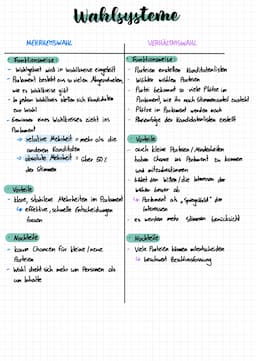 Wahlsysteme
MEHRHEITSWAHL
Funktionsweise
- Wahlgebiet wird in Wahlkreise eingeteilt
- Parlament besteht aus so vielen Abgeordneten,
wie es Wahlkreise gibt
- In jedem Wahlkreis stellen sich Kandidaten
zur Wahl
- Gewinner eines Wahlkreises zieht ins
Parlament
→ relative Mehrheit = mehr als die
anderen Kandidaten
→ absolute Mehrheit = über 50%
der Stimmen
Vorteile
- klare, stabilere Mehrheiten im Parlament
↳ effektive, schnelle Entscheidungen
Nachteile
- kaum Chancen für kleine/neue
Parteien
- Wahl dreht sich mehr um Personen als
um Inhalte
VERHÄLTNISWAHL
Funktionsweise
- Parteien erstellen Kandidatenlisten
- Wähler wählen Parteien
- Partei bekommt so viele Plätze im
Parlament, wie ihr nach Stimmenanteil zusteht
- Plätze im Parlament werden nach
Reihenfolge der Kandidatenlisten besetzt
Vorteile
- auch kleine Parteien / Minderheiten
haben Chance ins Parlament zu kommen
und mitzubestimmen
- bildet den Willen / die Interessen der
Wähler besser ab
↳ Parlament als „Spiegelbild" der
Interessen
- es werden mehr Stimmen berücksichtigt
Nachteile
- Viele Parteien können mitentscheiden
↳ erschwert Beschlussfassung